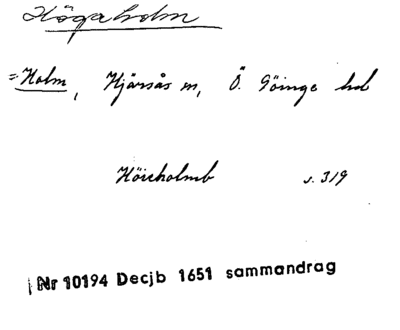 Högaholm
= Holm, Hjärsås sn, Ö. Göinge hd
Höieholmb s. 319
Nr 10194 Decjb 1651 sammandrag